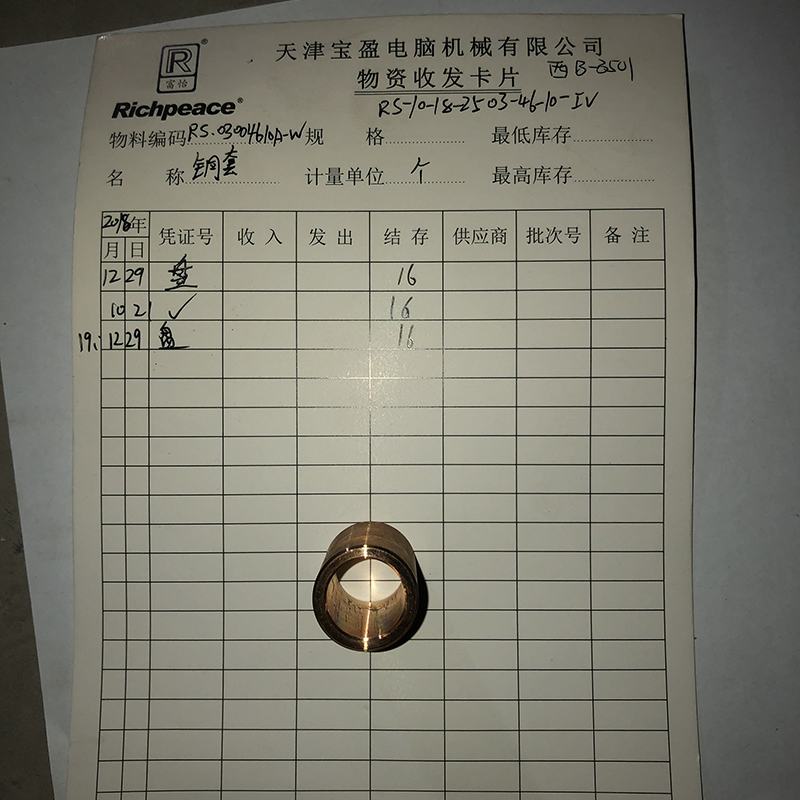 R®
富怡
Richpeace®
天津宝盈电脑机械有限公司
物资收发卡片 西B-3501
RS-10-18-2503-46-10-IV
物料编码RS.03004610A-W 规 格 最低库存
名 称 铜套 计量单位 个 最高库存
2018年 凭证号 收入 发出 结存 供应商 批次号 备注
月 日
12 29 盘 16
10 21 ✓ 16
19. 12 29 盘 16